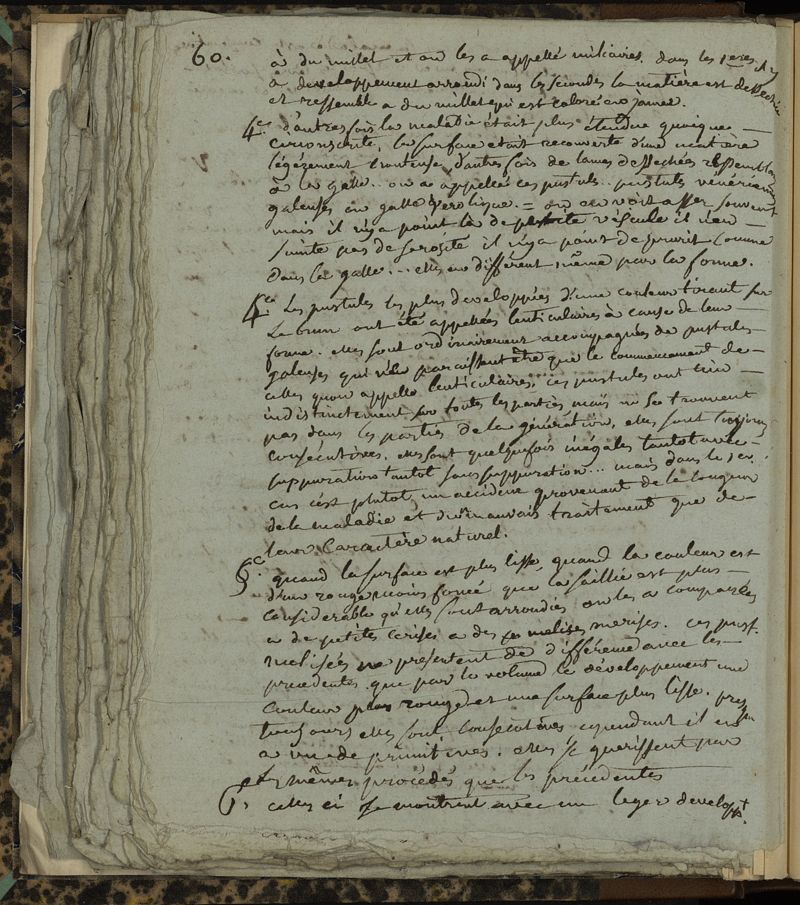 60.
à du millet et on les a appellé miliaires. dans les 1eres il y
a developpement arrondi dans les secondes la matière est dessechée
et ressemble a du millet qui est coloré en jaune.
4e. d'autres fois la maladie était plus étendue quoique
circonscrite, la surface etait recouverte d'une matière
légèrement croutense, d'autres fois de lames dessechées ressemblan
à la galle.. on a appellé ces pustul.. pustules vénériennes
galeuses ou galle verolique. = on en voit asser souvent
mais il n'y a point là de petite vésicule il n'en
suinte pas de serosité il n'y a point de prurit comme
dans la galle... elles en différent même par la forme.
4e. Les pustules les plus developpées d'une couleur tirant sur
le brun ont été appellées lenticulaires à cause de leur
forme. elles sont ordinairement accompagnées de pustules
galeuses qui ne paroissent être que le commencement de
celles qu'on appelle lenticulaires, ces pustules ont lieu
indistinctement sur toutes les parties mais ne se trouvent
pas dans les parties de la génération, elles sont toujours
consécutives. elles sont quelquefois inégales tantot avec
suppuration tantot sans suppuration... mais dans le 1er.
cas c'est plutot un accident provenant de la longueur
de la maladie et d'un mauvais traitement que de
leur caractère naturel.
5e. quand la surface est plus lisse, quand la couleur est
d'un rouge moins foncé que la saillie est plus
considerable qu'elles sont arrondies on les a comparées
a de petites cerises a des merises. ces pust.
merisées ne présentent de différence avec les
precedentes que par le volume le développement une
couleur plus rouge et une surface plus lisse. pres
toujours elles sont consécutives cependant il y en
a eu de primitives. elles se guerissent par
les mêmes procédés que les précédentes
celles ci se montrent avec un leger developpt.